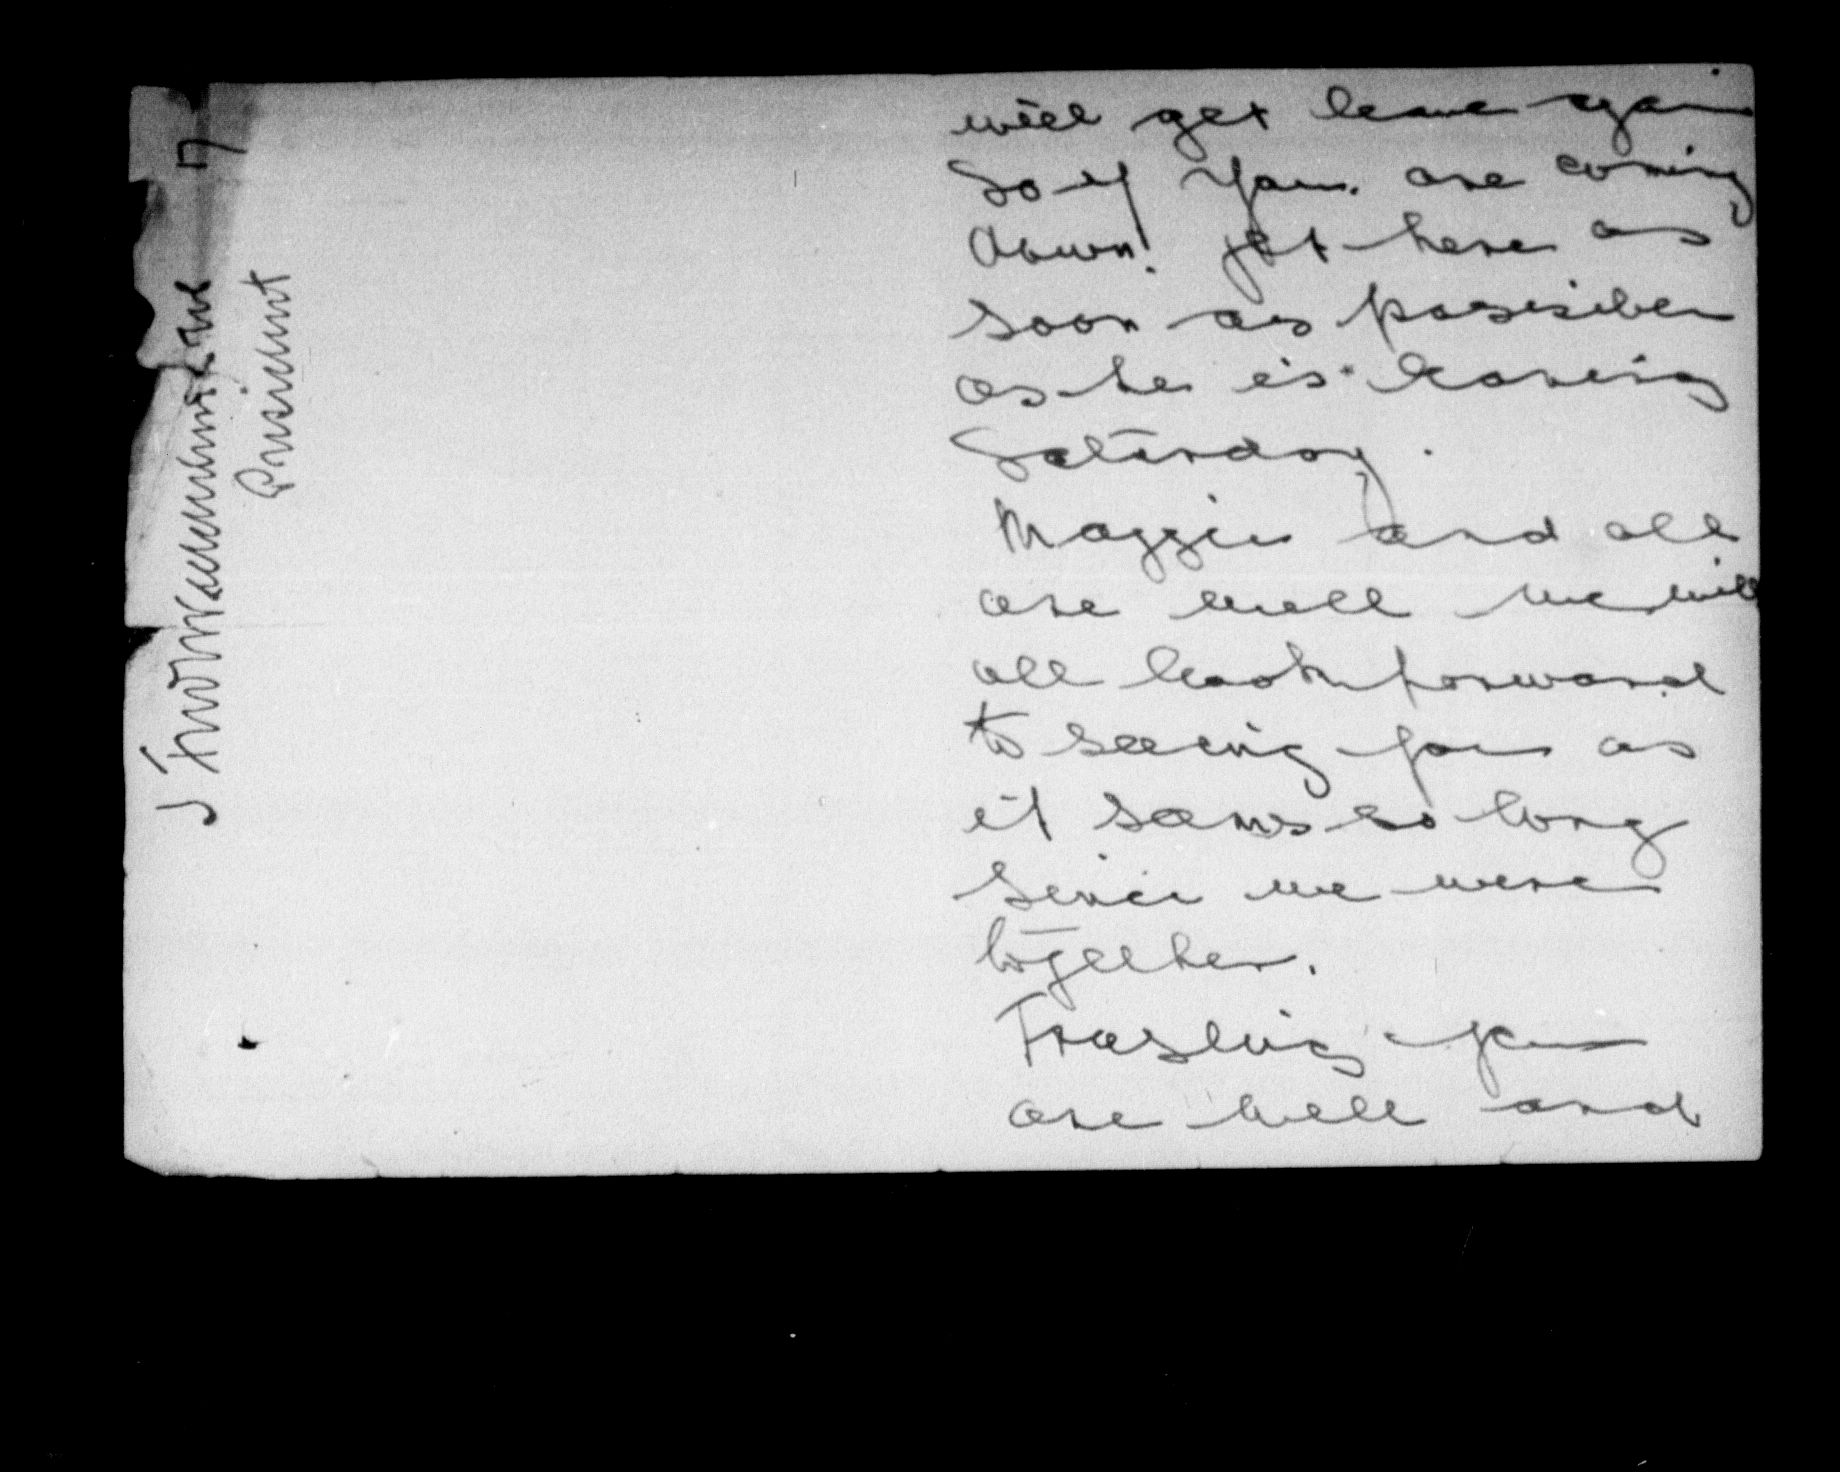 will get leave again
So if you. are coming
down! get here as
soon as possible
as he is leaving
Saturday.
Maggie and all
are well we will
all look forward
to seeing you as
it seems so long
since we were
together.
Trusting you
are well and
President